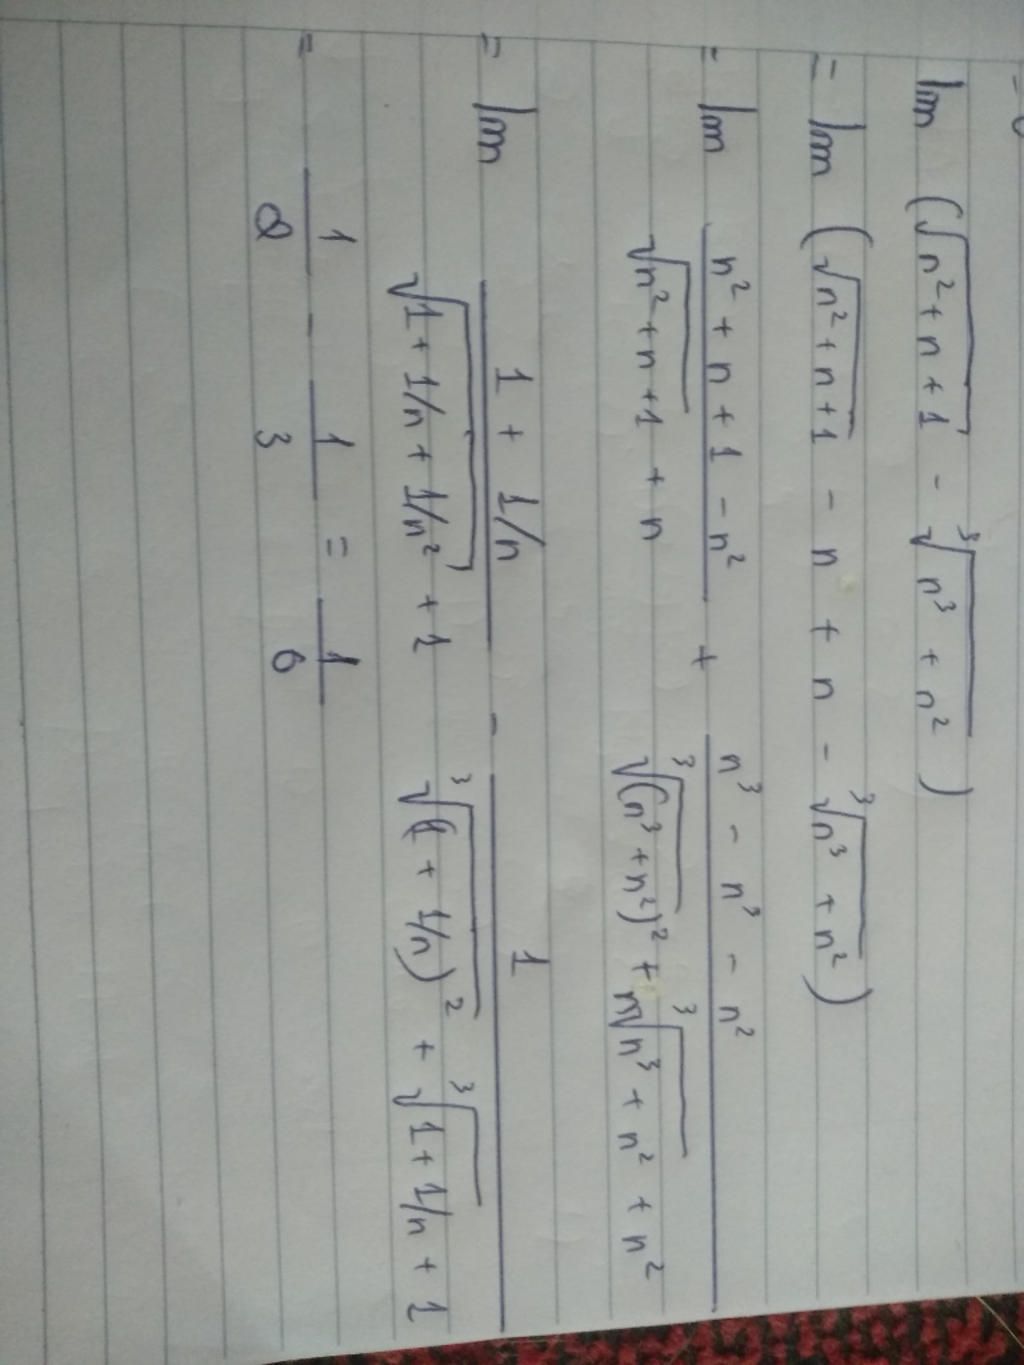 lim (√(n² + n + 1) - ³√(n³ + n²))
= lim (√(n² + n + 1) - n + n - ³√(n³ + n²))
= lim (n² + n + 1 - n²)/(√(n² + n + 1) + n) + (n³ - n³ - n²)/(³√((n³ + n²)²) + n³√(n³ + n²) + n²)
= lim (1 + 1/n)/(√(1 + 1/n + 1/n²) + 1) - 1/(³√((1 + 1/n)²) + ³√(1 + 1/n) + 1)
= 1/2 - 1/3 = 1/6